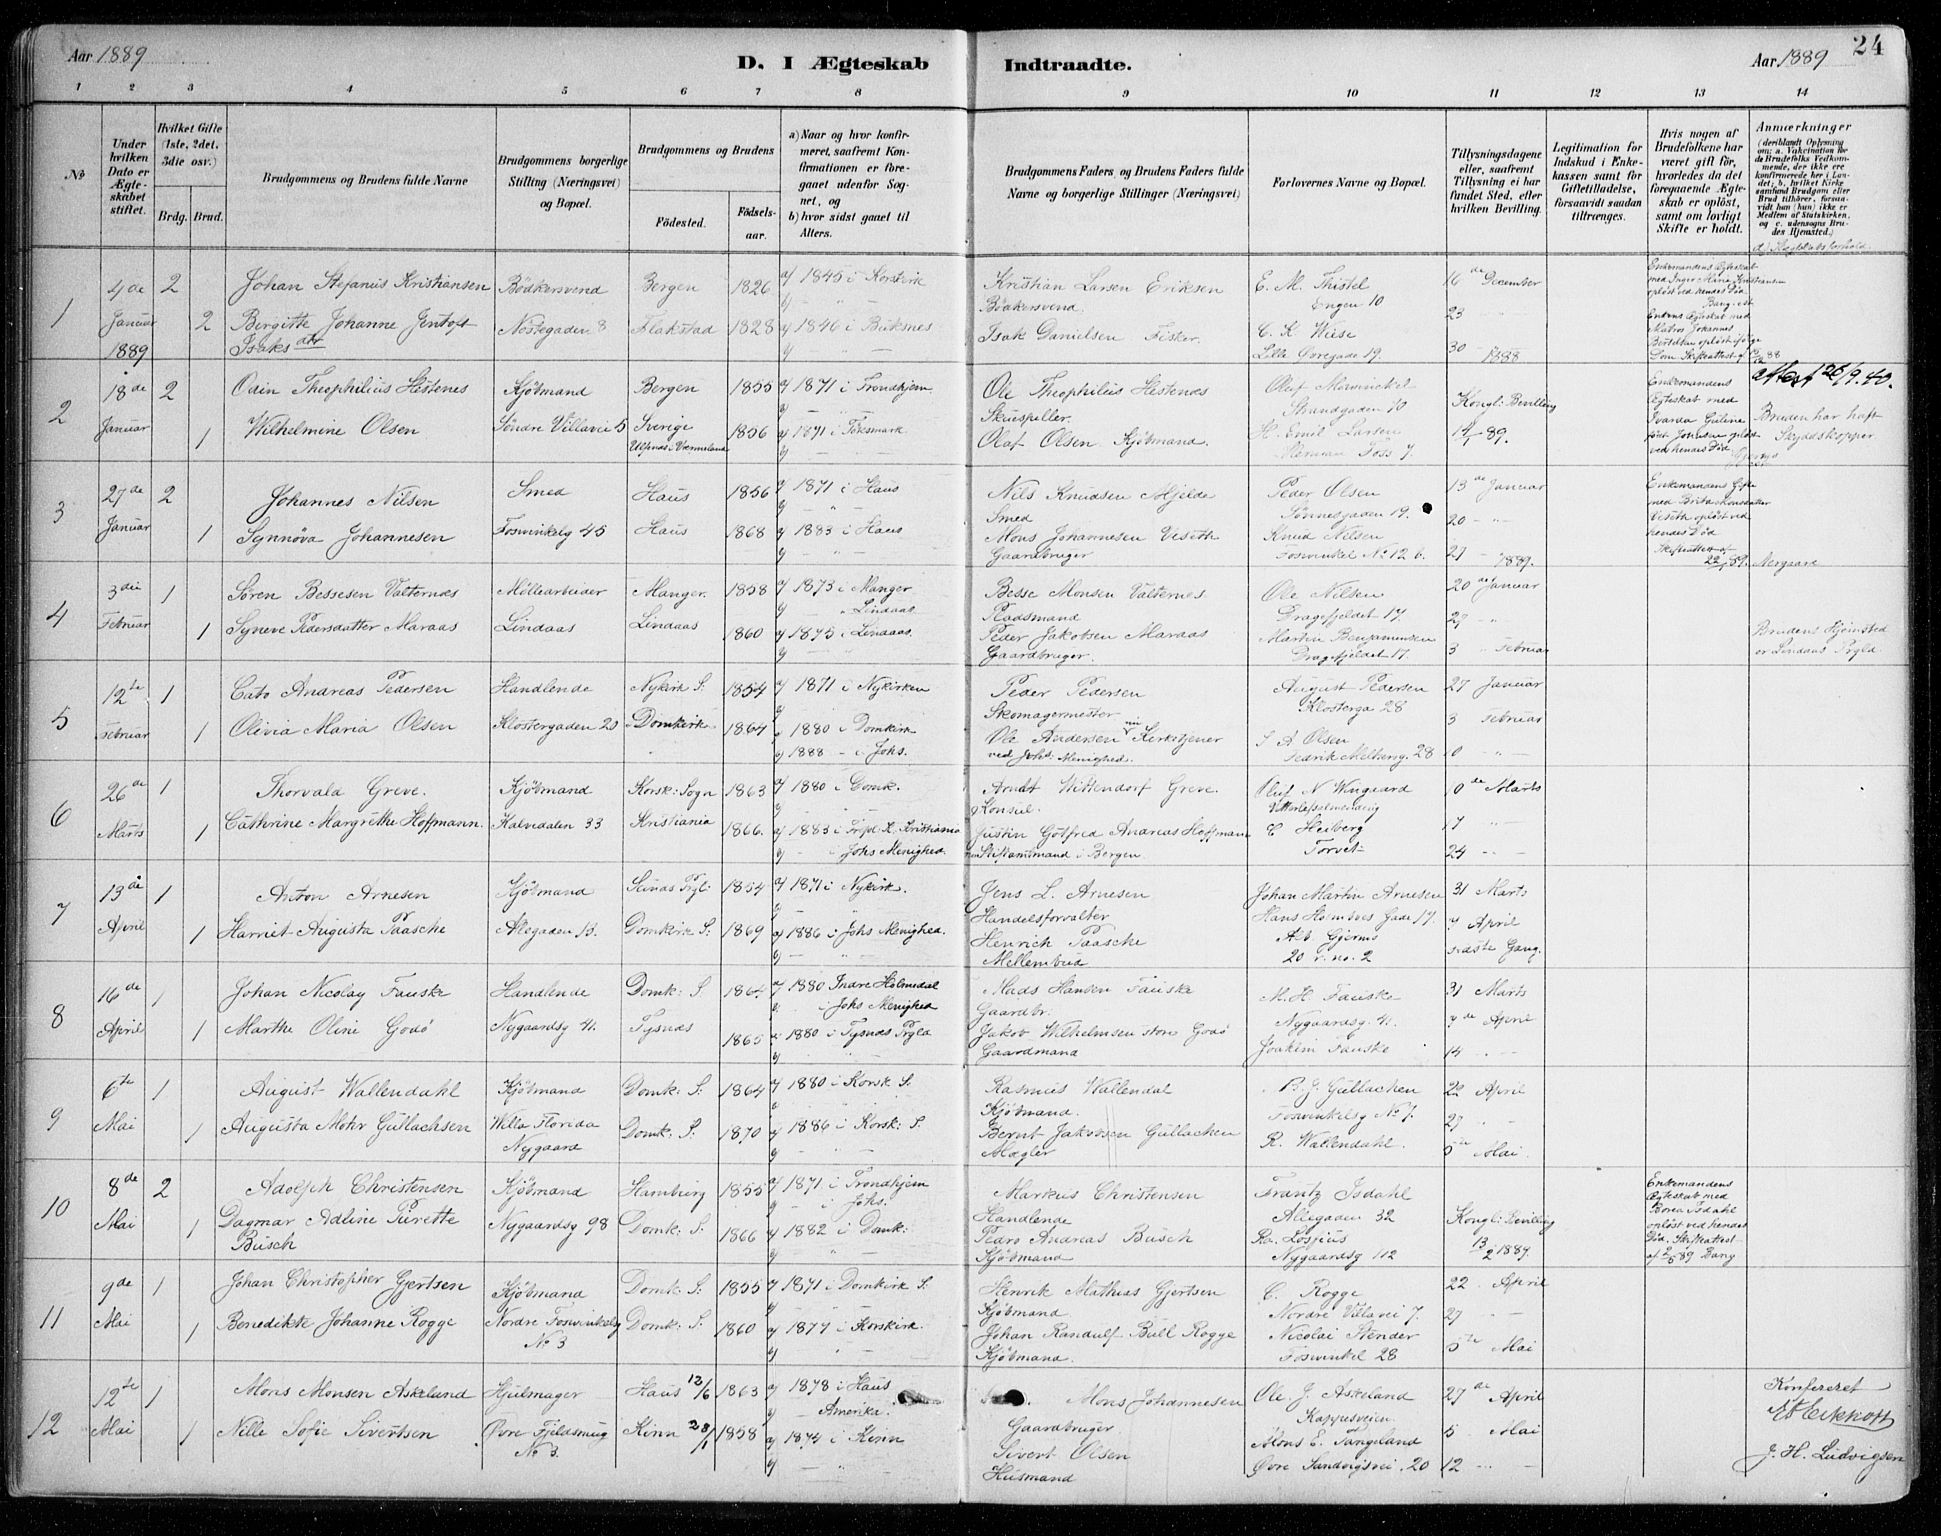 Aar 1889
D. I Ægteskab Indtraadte.
Aar 1889
24
1 2 3 4 5 6 7 8 9 10 11 12 13 14
No
Under hvilken Dato er Ægteskabet stiftet.
Hvilket Gifte (1ste, 2det, 3die osv.)
Brdg. Brud.
Brudgommens og Brudens fulde Navne
Brudgommens borgerlige Stilling (Næringsvei) og Bopæl.
Brudgommens og Brudens
Fødested.
Fødselsaar.
a) Naar og hvor konfirmeret, saafremt Konfirmationen er foregaaet udenfor Sognet, og
b) hvor sidst gaaet til Alters.
Brudgommens Faders og Brudens Faders fulde Navne og borgerlige Stillinger (Næringsvei)
Forlovernes Navne og Bopæl.
Tillysningsdagene eller, saafremt Tillysning ei har fundet Sted, efter hvilken Bevilling.
Legitimation for Indskud i Enkekassen samt for Giftetilladelse, forsaavidt saadan tiltrænges.
Hvis nogen af Brudefolkene har været gift før, hvorledes da det foregaaende Ægteskab er opløst, samt om lovligt Skifte er holdt.
Anmærkninger (deriblandt Oplysning om: a. Vakcination for de Brudefolks Vedkommende, der ikke ere konfirmerede her i Landet; b. hvilket Kirkesamfund Brudgom eller Brud tilhører, forsaavidt han (hun) ikke er Medlem af Statskirken, og c. udensogns Brudes Hjemsted.)
1
4de Januar 1889
2
Johan Stefanius Kristiansen
Bödkersvend
Bergen
1826
a) 1845 i Korskirk
Kristian Larsen Eriksen
Bödkersvend.
E. M. Thistel
Engen 10
16de December
2
Bergitte Johanne Jentoft
Isaksdtr
Nöstegaden 8
Flakstad
1828
a) 1846 i Buksnes
Isak Danielsen Fisker.
C. K. Wiese
Lille Øvregade 19.
23
30 1888
Enkemandens Ægteskab
opløst ved hendes Död
2
18de Januar
2
Odin Theophilus Hestenes
Kjöbmand
Bergen
1855
a) 1871 i Trondhjem
Ole Theophilus Hestenes
Skuespiller.
Oluf Mowinckel
Strandgaden 10
Kongl: Bevilling
1
Wilhelmine Olsen
Söndre Villavei 5
Sverige
1856
a) 1871 i
Olaf Olsen Kjöbmand.
H. Emil Larsen
14/1 89.
Enkemandens
Ægteskab med
ved hendes Död
Attest 26/9.40.
Bruden har haft
Skydskopper
3
27de Januar
2
Johannes Nilsen
Smed
Haus
1856
a) 1871 i Haus
Nils Knudsen Mjelde
Smed
Peder Olsen
Sönnesgaden 19.
13de Januar
1
Synnöva Johannesen
Fosvinkelg 45
Haus
1868
a) 1883 i Haus
Mons Johannesen Viseth
Gaardbruger
Knud Nilsen
Fosvinkel No 12 b.
20
27 1889.
Enkemandens Gifte
opløst ved
hendes Död
4
3die Februar
1
Sören Bessesen Valternes
Möllearbeider
Manger.
1858
a) 1873 i Manger
b) " Lindaas
Besse Monsen Valternes
Ole Nilsen
Dragefjeldet 17.
20de Januar
1
Syneve Pedersdatter Maraas
Lindaas
Lindaas
1860
a) 1875 i Lindaas.
Peder Jakobsen Maraas
Gaardbruger.
Martin Benjaminsen
Dragefjeldet 17.
27
3 Februar
Brudens Hjemsted
er Lindaas Prgld
5
12te Februar
1
Cato Andreas Pedersen
Handlende
Nykirk S:
1854
a) 1871 i Nykirken
Peder Pedersen
Skomagermester
August Pedersen
Klosterga 28
27 Januar
1
Olivia Maria Olsen
Klostergaden 20
Domkirk
1864
a) 1880 i Domkirk
b) 1888 - i Johs.
Ole Andersen Kirketjener
ved Johs: Menighed.
S A Olsen
3 Februar
10
6
26de Marts
1
Thorvald Greve.
Kjöbmand
Korsk: Sogn
1863
a) 1880 i Domk.
Arndt Wittendorf Greve.
Konsul.
Oluf N Wingaard
10de Marts
1
Cathrine Margrethe Hoffmann.
Kalvedalen 33
Kristiania
1866.
a) 1883 i Trefl. K. Kristiania
b) - i Johs Menighed.
Justin Gotfred Andreas Hoffmann
Stiftamtmand i Bergen.
C Heiberg
Torvet
17
24
7
13de April
1
Anton Arnesen
Kjöbmand
Sunds Prgl:
1854
a) 1871 i Nykirk.
Jens L. Arnesen
Handelsforvalter
Johan Martin Arnesen
Hans Holmboes Gade 17.
31 Marts
1
Harriet Augusta Paasche
Allegaden 13.
Domkirk S:
1869
a) 1886 i Johs Menighed.
Henrich Paasche
Mellembud
Alb. Gjerms
20 r. no. 2
7 April
sidste Gang.
8
16de April
1
Johan Nicolay Fauske
Handlende
Domk: S.
1864
a) 1880 Indre Holmedal
b) i Johs Menighed
Mads Hansen Fauske
Gaardbr:
M. H. Fauske
Nygaardsg 41.
31 Marts
1
Marthe Oline Godö
Nygaardsg 41.
Tysnæs
1865
a) 1880 i Tysnæs Prgld
Jakob Wilhelmsen store Godö
Gaardmand
Joakim Fauske
7de April
14
9
6te Mai
1
August Wallendahl
Kjöbmand
Domk: S.
1864
a) 1880 i Korsk S.
Rasmus Wallendal
Kjöbmand.
B. J. Gullachsen
Fosvinkelsg No 7.
22 April
1
Augusta Mohr Gullachsen
Willa Florida
Nygaard
Domk: S:
1870
a) 1886 i Korsk: S.
Bernt Jakobsen Gullachsen
Mægler
R. Wallendahl.
27
5te Mai
10
8de Mai
2
Adolph Christensen
Kjöbmand
Hamburg
1855
a) 1871 i Trondhjem
b) - i Johs.
Markus Christensen
Handlende
Frantz Isdahl
Allegaden 32
Kongl: Bevilling
1
Dagmar Adline Pierette
Busch
Nygaardsg 98
Domk: S:
1866
a) 1882 i Domk:
Pedro Andreas Busch
Kjöbmand
Nygaardsg 112
13/2 1889.
Enkemandens
Ægteskab med
Isdahl
oplöst ved hendes
Död. Skifteattest
11
9de Mai
1
Johan Christopher Gjertsen
Kjöbmand
Domk: S:
1855
a) 1871 i Domkirk S:
Henrik Mathias Gjertsen
Kjöbmand
C. Rogge
Nordre Villavei 7.
22 April
1
Benedikte Johanne Rogge
Nordre Fosvinkelg
No 3
Domk: S.
1860
a) 1877 i Korskirk.
Johan Randulf Bull Rogge
Kjöbmand.
Nicolai Stender
Fosvinkel 28
27
5te Mai
12
12te Mai
1
Mons Monsen Askeland
Hjulmager
Haus 12/6
1863
a) 1878 i Haus
b) - Amerika.
Mons Johannesen
Gaardbruger
Ole J. Askeland
Kappesveien
27de April
1
Nille Sofie Sivertsen
Øvre Fjeldsmug
No 3.
Kinn 23/1
1858
a) 1874 i Kinn
Sivert Olsen
Husmand
Mons E. Tangeland
Øvre Sandvigsvei. 20
5 Mai
12
Konfereret
J. H. Ludvigsen